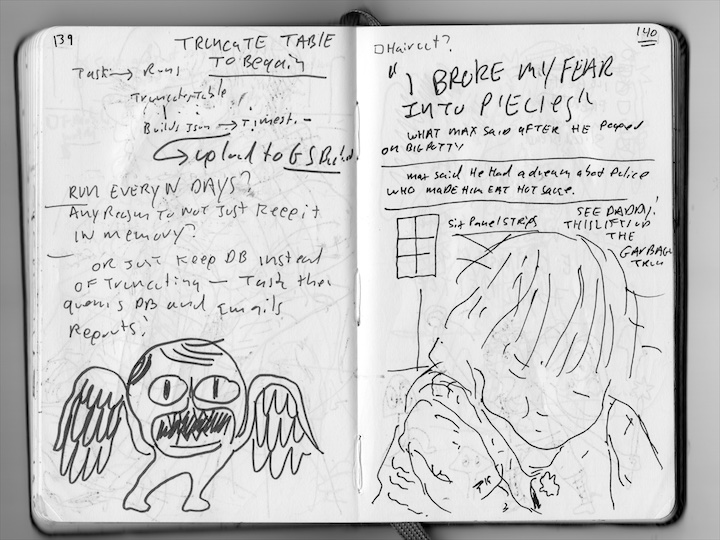 139
TRUNCATE TABLE
TO Begain
Task → Runs
Truncates Table
Builds Json → Timest.
upload to GS
RUN EVERY N DAYS?
Any Reason To NOT JUST Keep it
IN memory?
OR JUST Keep DB Instead
OF Truncating — Task then
querys DB and Emails
Reports?
140
□ Haircut?
"I BROKE MY FEAR
INTO PIECIES"
WHAT MAX SAID AFTER HE Pooped
ON BIG POTTY
max said He Had a dream about Police
WHO MADE Him EAT HOT SAUCE.
Six Panel STRIPS
SEE DADDY!
THIS LIFTS UP
THE
GARBAGE